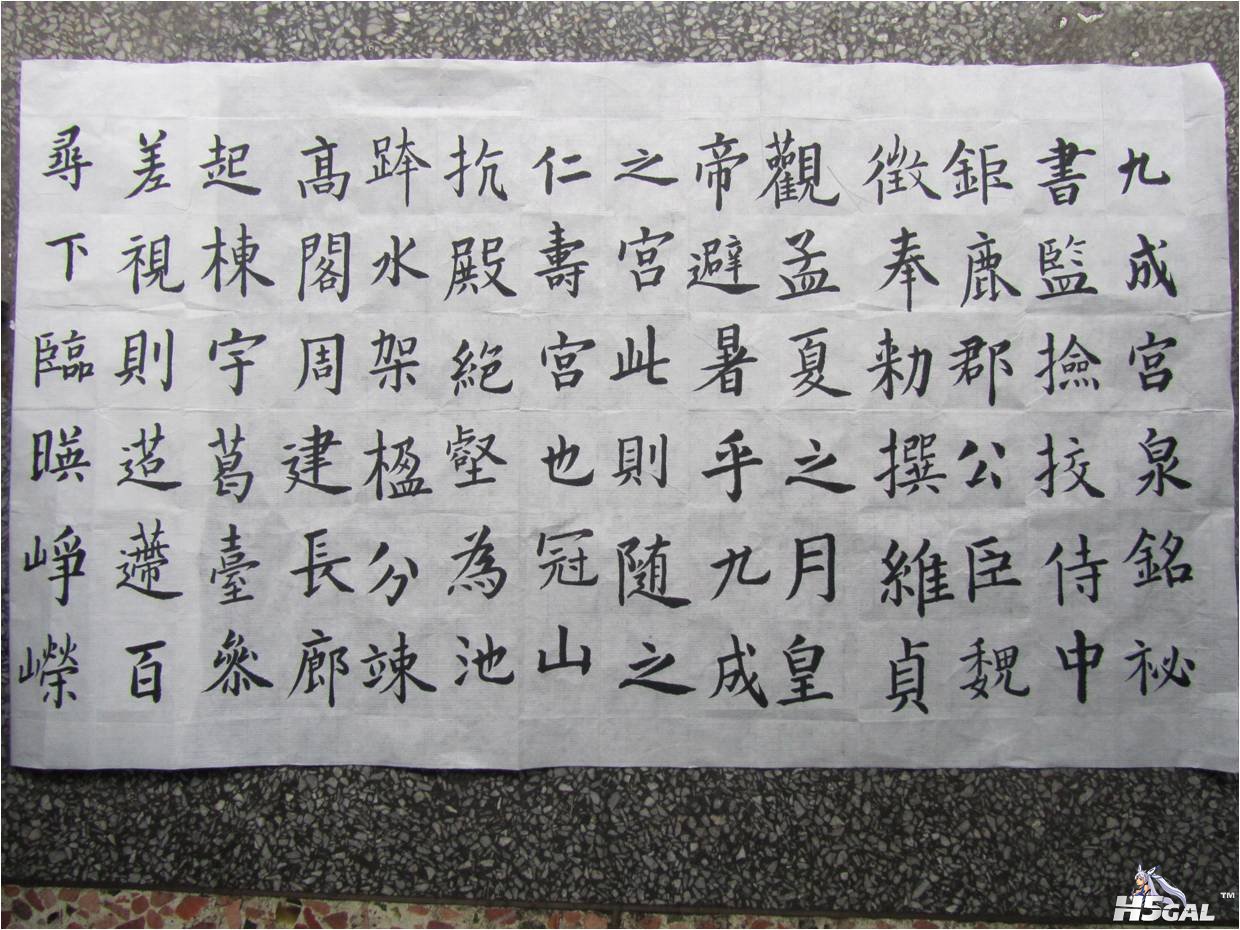 九成宫泉銘祕
書監撿挍侍中
鉅鹿郡公臣魏
徵奉勑撰維貞
觀孟夏之月皇
帝避暑乎九成
之宫此則随之
仁壽宫也冠山
抗殿絶壑為池
跨水架楹分竦
髙閣周建長廊
起棟宇葛臺叅
差視則迢遰百
尋下臨暎崢嶸
H5GAL™